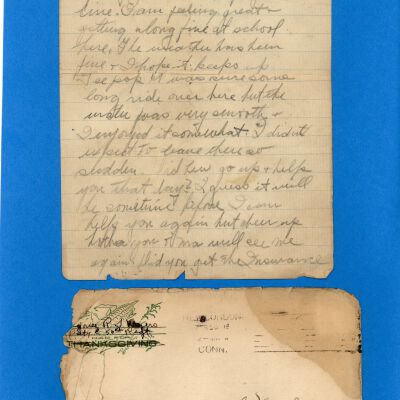 line. I am feeling great &
getting along fine at school
here. The weather has been
fine & I hope it keeps up
Gee pop it was sure some
long ride over here but the
water was very smooth &
I enjoyed it somewhat. I didn't
expect to leave there so
sudden. Who go up & help
you that day? I guess it will
be sometime before I can
help you again but cheer up
both you & ma will see me
again. Did you get the Insurance
R. S.
THANKSGIVING
NEW LONDON
CONN.